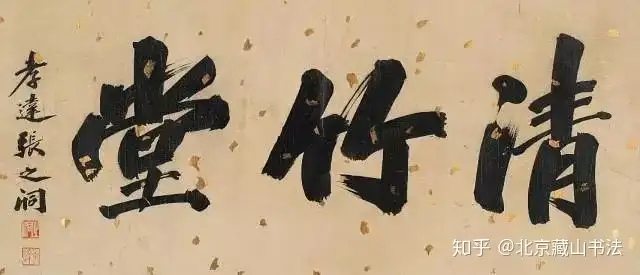 清竹堂
孝達張之洞
知乎 @北京藏山书法